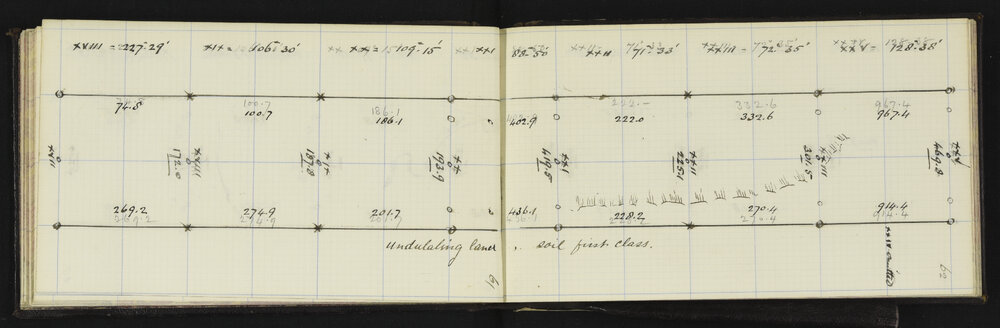 xviii = 227°-29' xix = 106°-30' xx = 109°-15' xxi 88°-50' xxii 71°-33' xxiii = 72°-35' xxv = 128°-38'
74.8 100.7 186.1 402.9 222.0 332.6 967.4
100.7 186.1 222.- 332.6 967.4
172.0 xviii
187.8 xix
193.9 xx
419.5 xxi
225.1 xxii
301.5 xxiii
469.8 xxv
269.2 274.9 201.7 436.1 228.2 270.4 914.4
269.2 274.9 201.7 270.4 914.4
undulating land. soil first class.
xxiv omitted
61
62